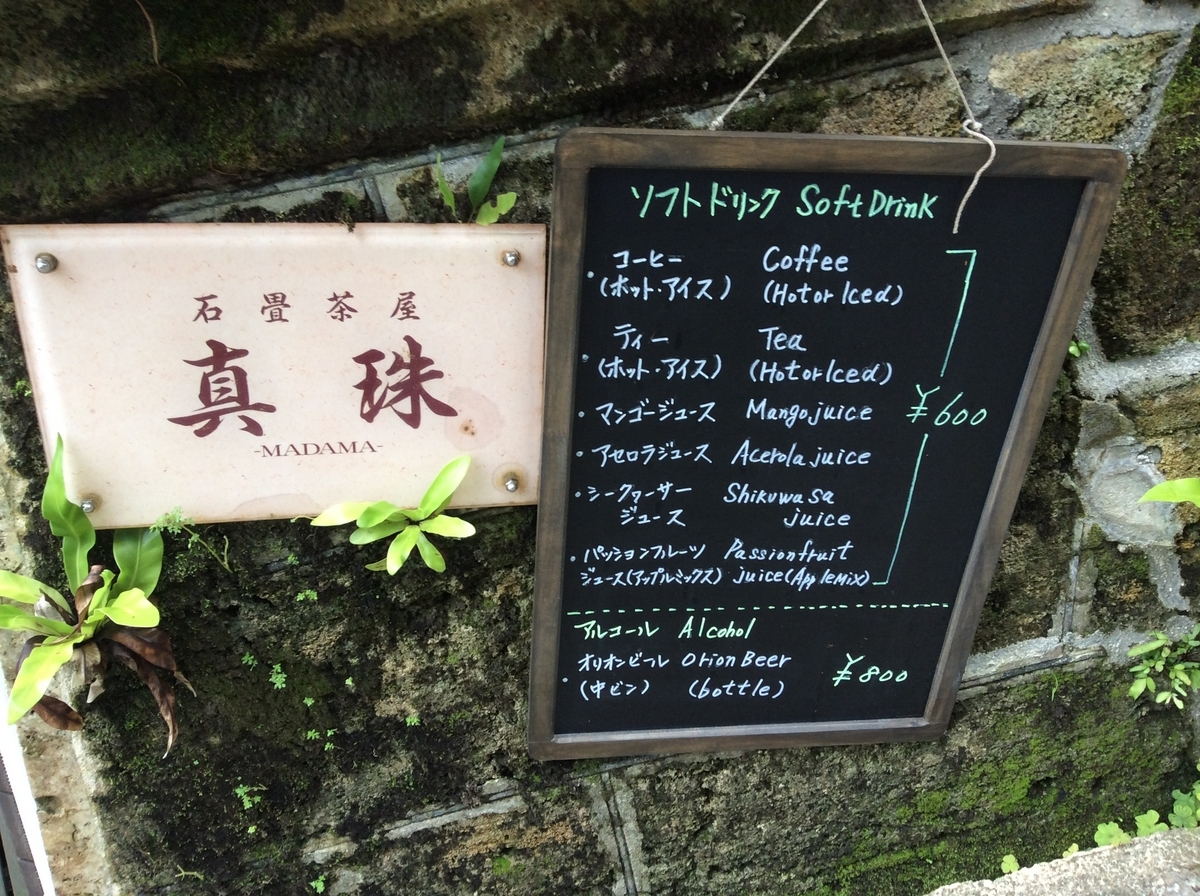 石畳茶屋
真珠
-MADAMA-
ソフトドリンク Soft Drink
・コーヒー Coffee
(ホット・アイス) (Hot or Iced)
・ティー Tea
(ホット・アイス) (Hot or Iced)
・マンゴージュース Mango juice
・アセロラジュース Acerola juice
¥600
・シークァーサー Shikuwasa
ジュース juice
・パッションフルーツ Passionfruit
ジュース(アップルミックス) juice (Apple Mix)
アルコール Alcohol
・オリオンビール Orion Beer
(中ビン) (bottle)
¥800